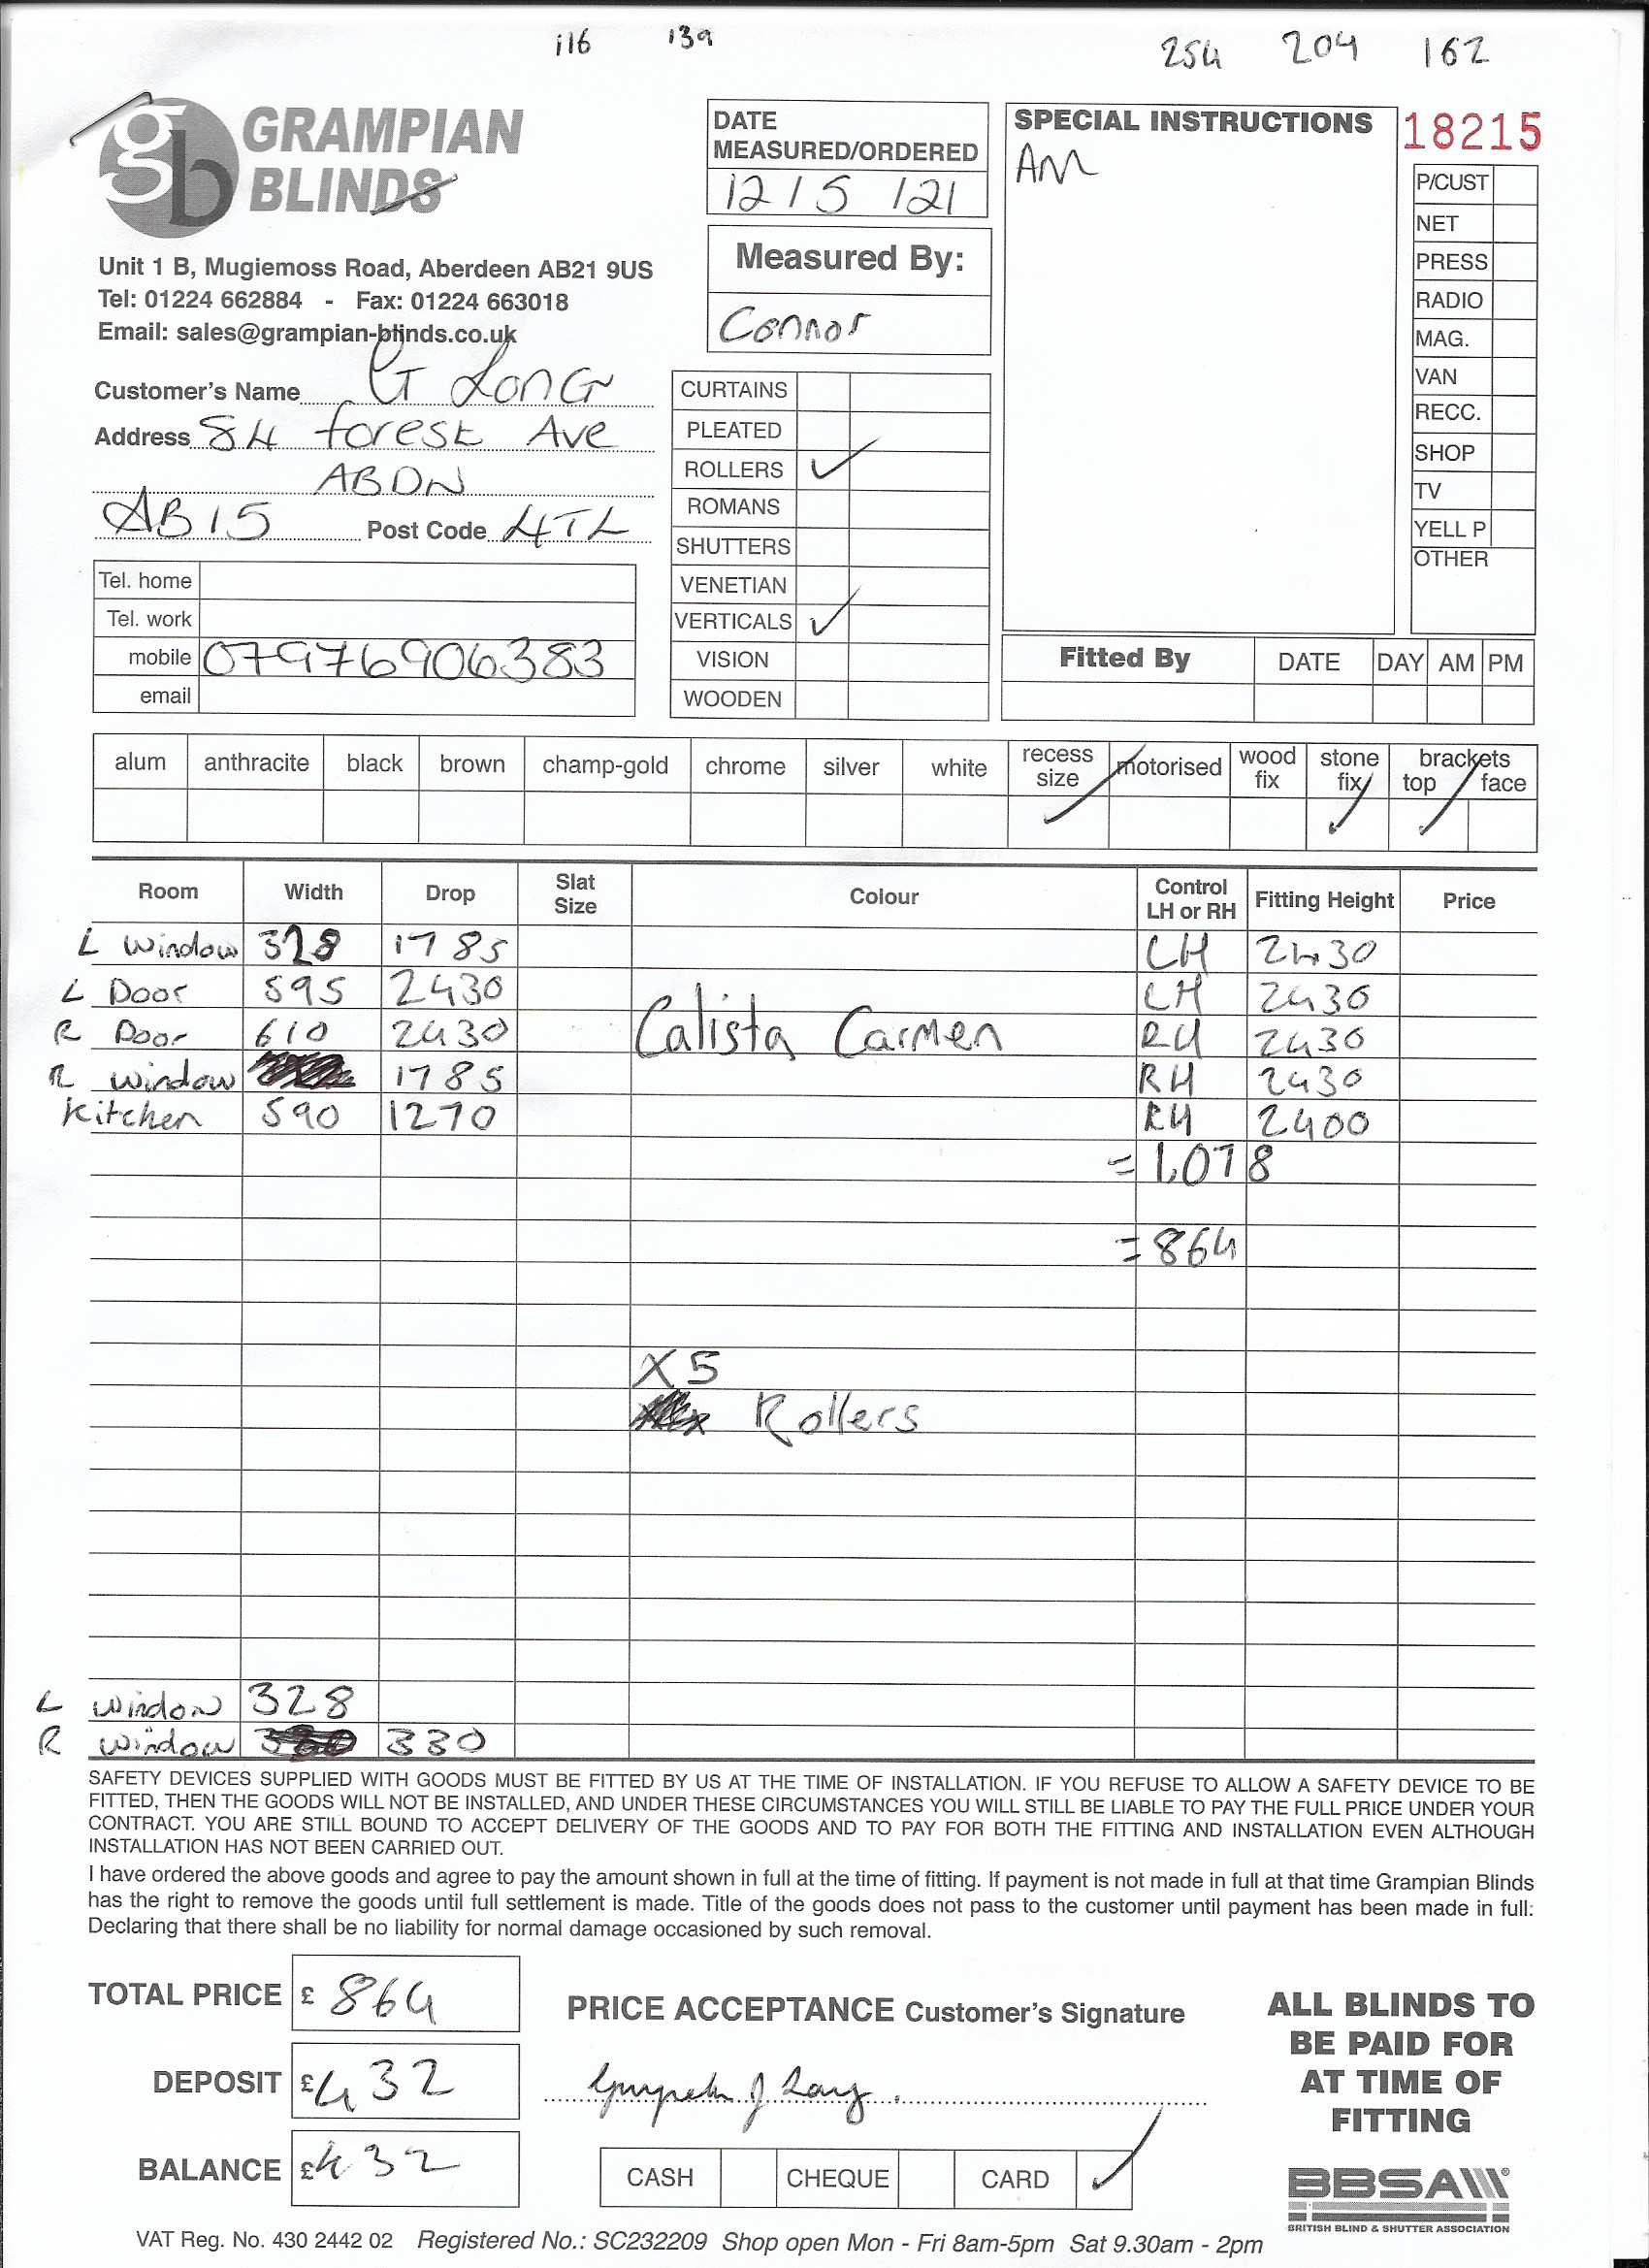 i16 139 254 204 162
gb GRAMPIAN BLINDS
Unit 1 B, Mugiemoss Road, Aberdeen AB21 9US
Tel: 01224 662884 - Fax: 01224 663018
Email: sales@grampian-blinds.co.uk
Customer's Name G Long
Address 84 forest Ave
ABDN
AB15 Post Code 4TL
Tel. home
Tel. work
mobile 07976906383
email
DATE
MEASURED/ORDERED
12/5/21
Measured By:
Connor
CURTAINS
PLEATED
ROLLERS ✓
ROMANS
SHUTTERS
VENETIAN
VERTICALS ✓
VISION
WOODEN
SPECIAL INSTRUCTIONS
AM
18215
P/CUST
NET
PRESS
RADIO
MAG.
VAN
RECC.
SHOP
TV
YELL P
OTHER
Fitted By DATE DAY AM PM
alum anthracite black brown champ-gold chrome silver white recess size ✓ motorised wood fix stone fix ✓ brackets top ✓ face
Room Width Drop Slat Size Colour Control LH or RH Fitting Height Price
L Window 328 1785 LH 2430
L Door 595 2430 LH 2430
R Door 610 2430 Calista Carmen RH 2430
R window 1785 RH 2430
Kitchen 590 1270 RH 2400
= 1,078
= 864
X5
Rollers
L window 328
R window 330
SAFETY DEVICES SUPPLIED WITH GOODS MUST BE FITTED BY US AT THE TIME OF INSTALLATION. IF YOU REFUSE TO ALLOW A SAFETY DEVICE TO BE
FITTED, THEN THE GOODS WILL NOT BE INSTALLED, AND UNDER THESE CIRCUMSTANCES YOU WILL STILL BE LIABLE TO PAY THE FULL PRICE UNDER YOUR
CONTRACT. YOU ARE STILL BOUND TO ACCEPT DELIVERY OF THE GOODS AND TO PAY FOR BOTH THE FITTING AND INSTALLATION EVEN ALTHOUGH
INSTALLATION HAS NOT BEEN CARRIED OUT.
I have ordered the above goods and agree to pay the amount shown in full at the time of fitting. If payment is not made in full at that time Grampian Blinds
has the right to remove the goods until full settlement is made. Title of the goods does not pass to the customer until payment has been made in full:
Declaring that there shall be no liability for normal damage occasioned by such removal.
TOTAL PRICE £ 864
DEPOSIT £ 432
BALANCE £ 432
PRICE ACCEPTANCE Customer's Signature
CASH CHEQUE CARD ✓
ALL BLINDS TO
BE PAID FOR
AT TIME OF
FITTING
BBSA
BRITISH BLIND & SHUTTER ASSOCIATION
VAT Reg. No. 430 2442 02 Registered No.: SC232209 Shop open Mon - Fri 8am-5pm Sat 9.30am - 2pm